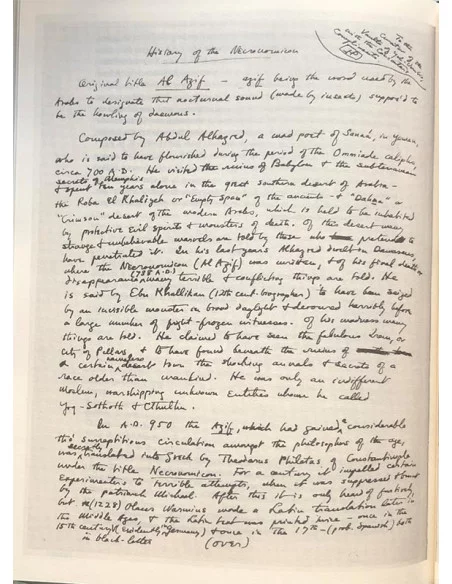 To the
Curator of the
Vaults of Yoh-
with the
Compliments
History of the Necronomicon
Original title Al Azif — azif being the word used by the
Arabs to designate that nocturnal sound (made by insects) suppos'd to
be the howling of daemons.
Composed by Abdul Alhazred, a mad poet of Sanaá, in Yemen,
who is said to have flourished during the period of the Ommiade caliphs,
circa 700 A.D. He visited the ruins of Babylon & the subterranean
secrets of Memphis
& spent ten years alone in the great southern desert of Arabia —
the Roba El Khaliyeh or "Empty Space" of the ancients — & "Dahna" or
"Crimson" desert of the modern Arabs, which is held to be inhabited
by protective evil spirits & monsters of death. Of this desert many
strange & unbelievable marvels are told by those who pretend to
have penetrated it. In his last years Alhazred dwelt in Damascus,
where the Necronomicon (Al Azif) was written, & of his final death or
disappearance (738 A.D.) many terrible & conflicting things are told. He
is said by Ebn Khallikan (12th cent. biographer) to have been seized
by an invisible monster in broad daylight & devoured horribly before
a large number of fright-frozen witnesses. Of his madness many
things are told. He claimed to have seen the fabulous Irem, or
City of Pillars, & to have found beneath the ruins of
a certain nameless desert town the shocking annals & secrets of a
race older than mankind. He was only an indifferent
Moslem, worshipping unknown Entities whom he called
Yog-Sothoth & Cthulhu.
In A.D. 950 the Azif, which had gained a considerable
tho' surreptitious circulation amongst the philosophers of the age,
was secretly translated into Greek by Theodorus Philetas of Constantinople
under the title Necronomicon. For a century it impelled certain
experimenters to terrible attempts, when it was suppressed & burnt
by the patriarch Michael. After this it is only heard of furtively,
but (1228) Olaus Wormius made a Latin translation later in
the Middle Ages, & the Latin text was printed twice — once in the
15th century (evidently in Germany) & once in the 17th — (prob. Spanish) both
in black-letter
(over)